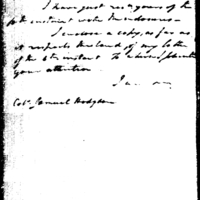 I have just rec'd yours of the
instant with enclosures
I enclose a copy, as far as
it respects the land of my letter
of the 6th instant to
your attention
I am
Col. Samuel Hodgdon